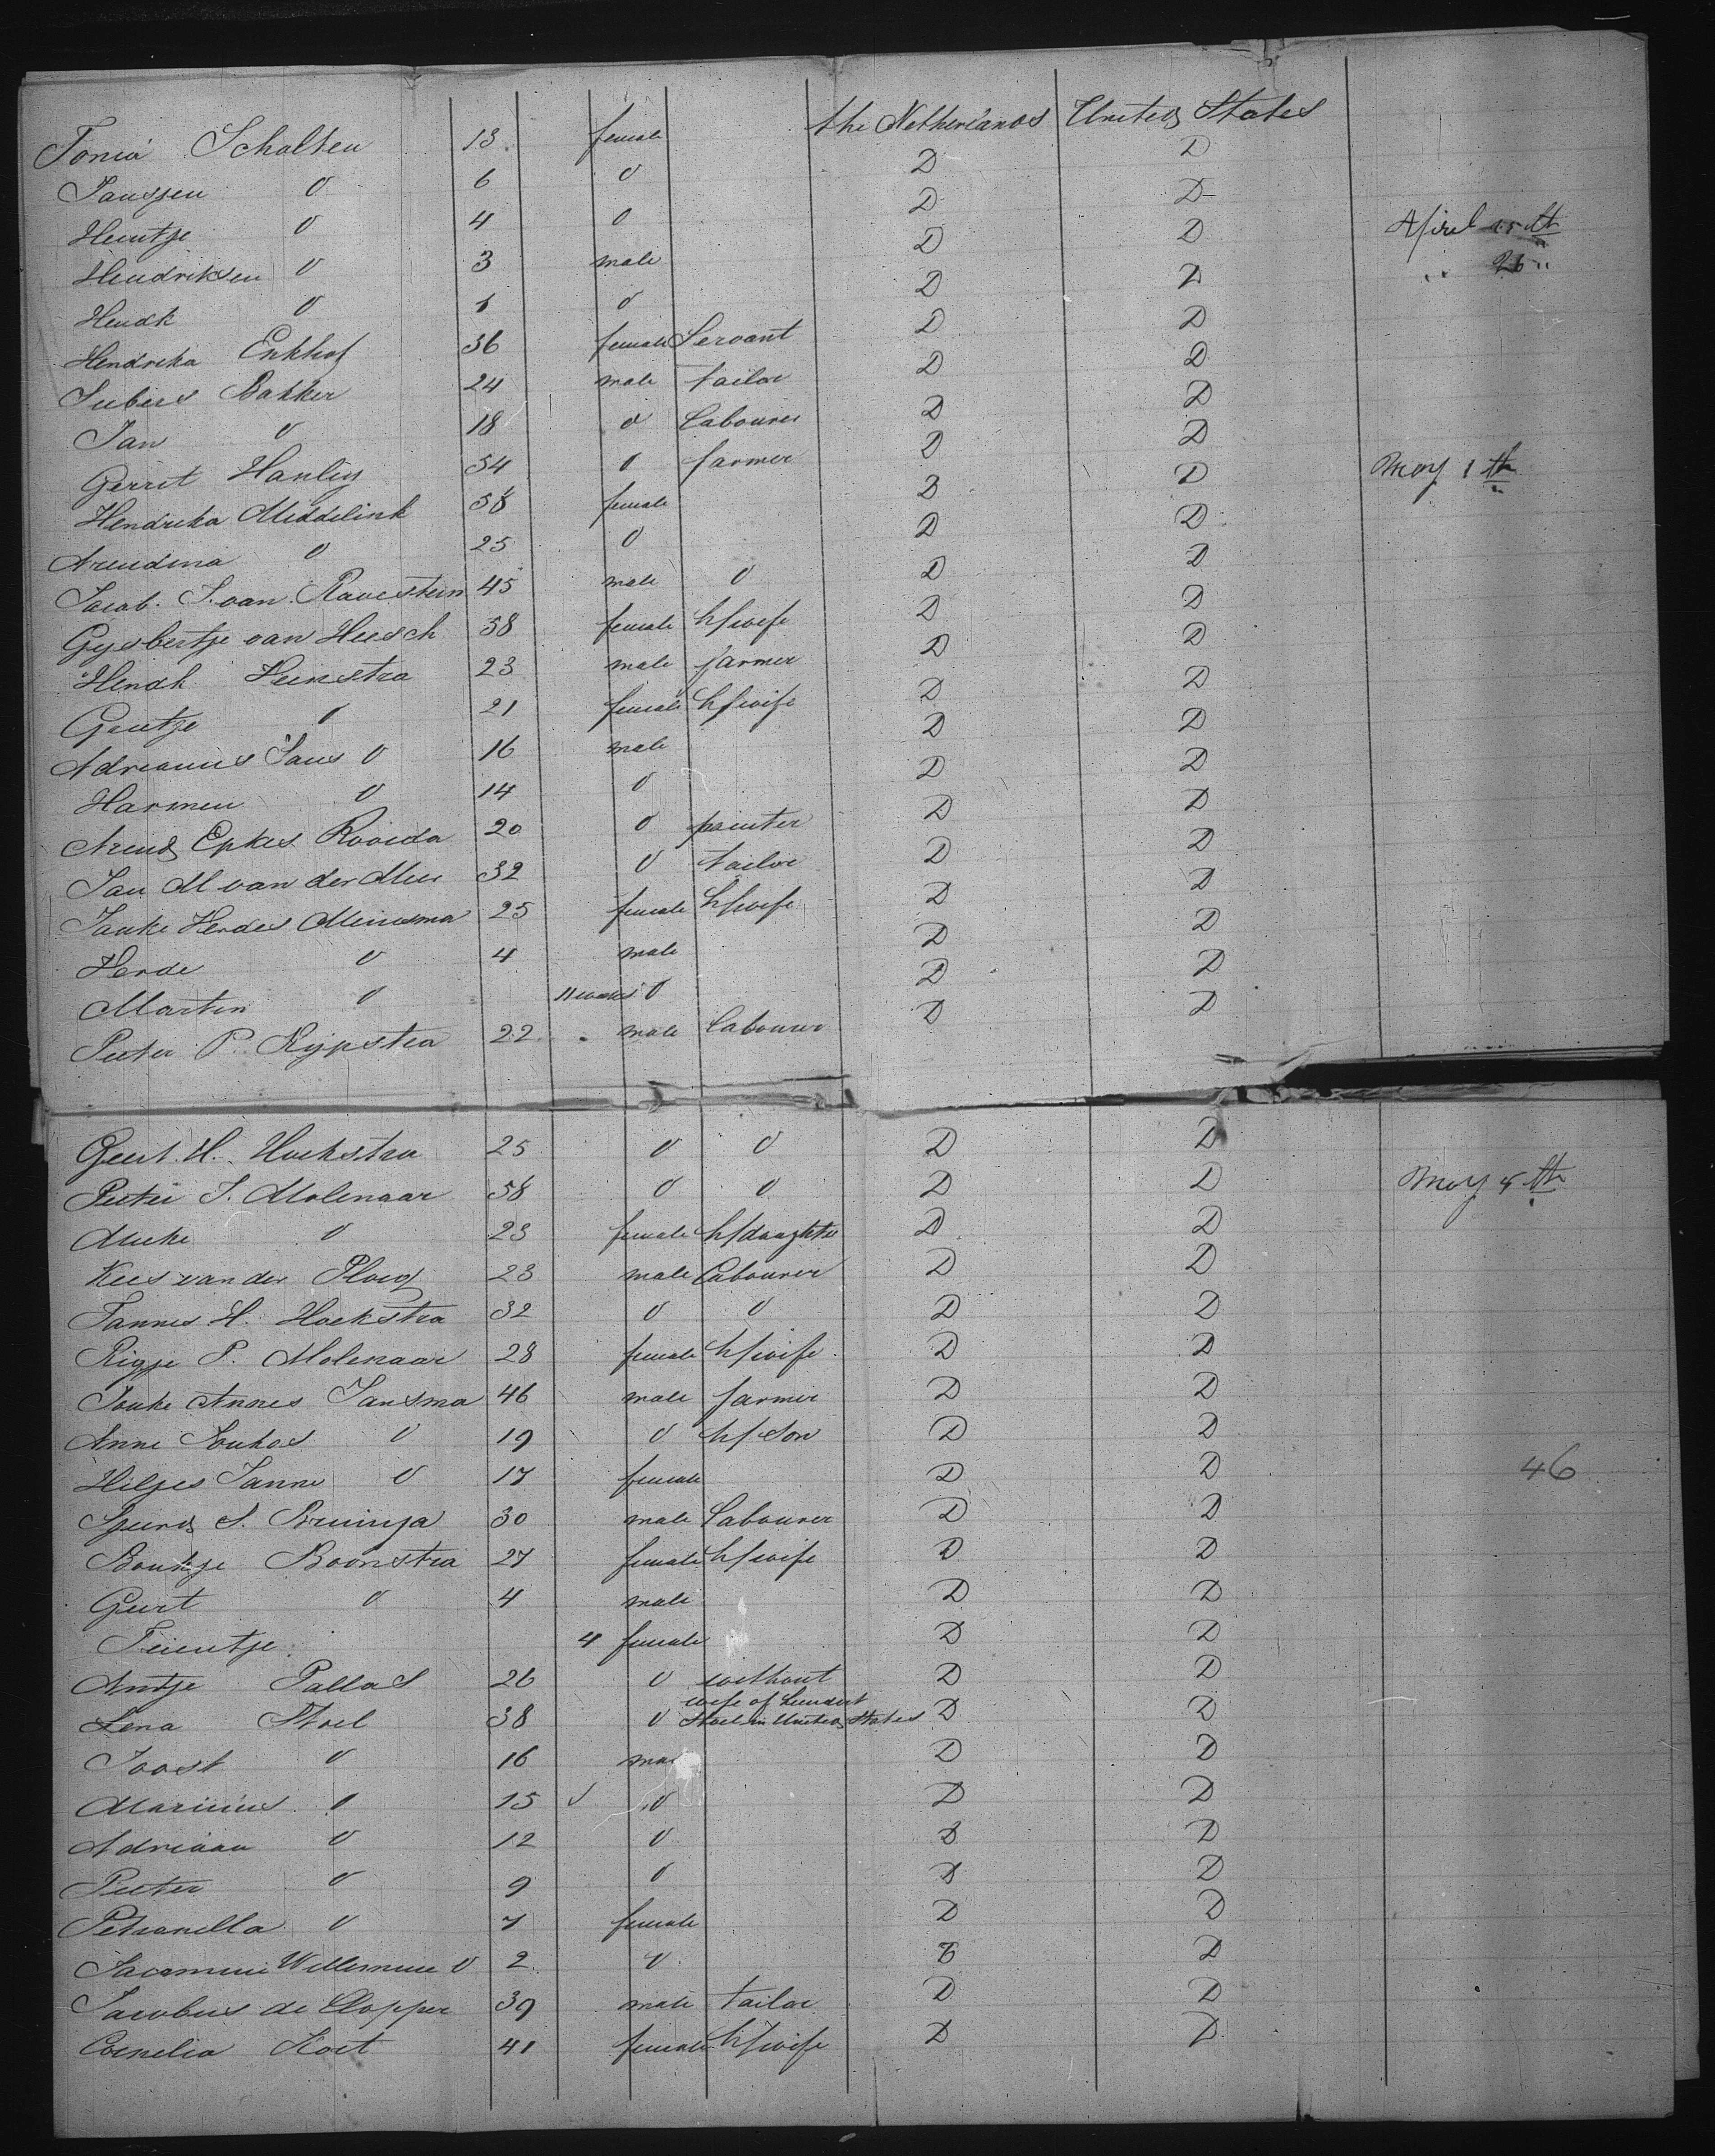 Tonia Scholten 13 female the Netherlands United States
Janssen 0 6 0 D D
Heintje 0 4 0 D D
Hendriksen 0 3 male D D April 25th
Hendk 0 1 0 D D " 26 "
Hendrika Enkhof 36 female Servant D D
Lubers Bakker 24 male tailor D D
Jan 0 18 0 Labourer D D
Gerrit Hanling 54 0 farmer D D
Hendrika Meddelink 58 female D D May 1th
Arendina 0 25 0 D D
Jacob. J. van Ravestein 45 male 0 D D
Gysbertje van Heesch 38 female h/wife D D
Hendk Heinstra 23 male farmer D D
Geertje 0 21 female h/wife D D
Adrianus Jans 0 16 male D D
Harmen 0 14 0 D D
Arend Epkes Rooida 20 0 painter D D
Jan M van der Meer 32 0 tailor D D
Jouke Herdes Meinsma 25 female h/wife D D
Herde 0 4 male D D
Marten 0 11 weeks 0 D D
Pieter P. Kypstra 22 male Labourer D D
Geert. H. Hoekstra 25 0 0 D D
Pieter J. Molenaar 58 0 0 D D May 4th
Aukje 0 23 female h/daughter D D
Kees van der Ploeg 23 male Labourer D D
Tannes H. Hoekstra 32 0 0 D D
Rigje P. Molenaar 28 female h/wife D D
Jouke Annes Jansma 46 male farmer D D
Anne Joukes 0 19 0 h/Son D D
Hilges Janne 0 17 female D D 46
Sjoerd S. Bruinja 30 male Labourer D D
Boukje Boonstra 27 female h/wife D D
Geert 0 4 male D D
Trientje 4 female D D
Antje Pallas 26 0 without D D
Lena Stoel 38 0 wife of Leendert Stoel in United States D D
Joost 0 16 male D D
Marinus 0 15 0 D D
Adriaan 0 12 0 D D
Pieter 0 9 0 D D
Petronella 0 7 female D D
Jacomine Willemine 0 2 0 D D
Jacobus de Clopper 39 male tailor D D
Cornelia Kort 41 female h/wife D D